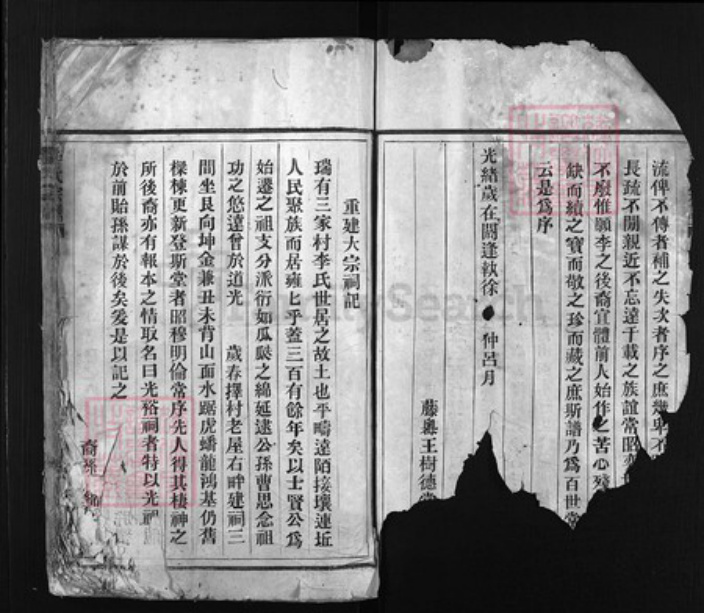 流俾不傳者補之失次者序之庶幾卑不
長疏不間親近不忘遠千載之族誼常昭
不廢惟願李之後裔宜體前人始作之苦心殘
缺而續之寶而敬之珍而藏之庶斯譜乃為百世常
云是為序
光緒歲在閼逢執徐 仲呂月
藤輿王樹德
重建大宗祠記
瑞有三家村李氏世居之故土也平疇遠陌接壤連坵
人民聚族而居雍匕乎蓋三百有餘年矣以士賢公為
始遷之祖支分派衍如瓜瓞之綿延逮公孫曹思念祖
功之悠遠曾於道光 歲春擇村老屋右畔建祠三
間坐艮向坤金兼丑未背山面水踞虎蟠龍鴻基仍舊
樑棟更新登斯堂者昭穆明倫常序先人得其棲神之
所後裔亦有報本之情取名曰光裕祠者特以光
於前貽孫謀於後矣爰是以記之
裔孫
FamilySearch